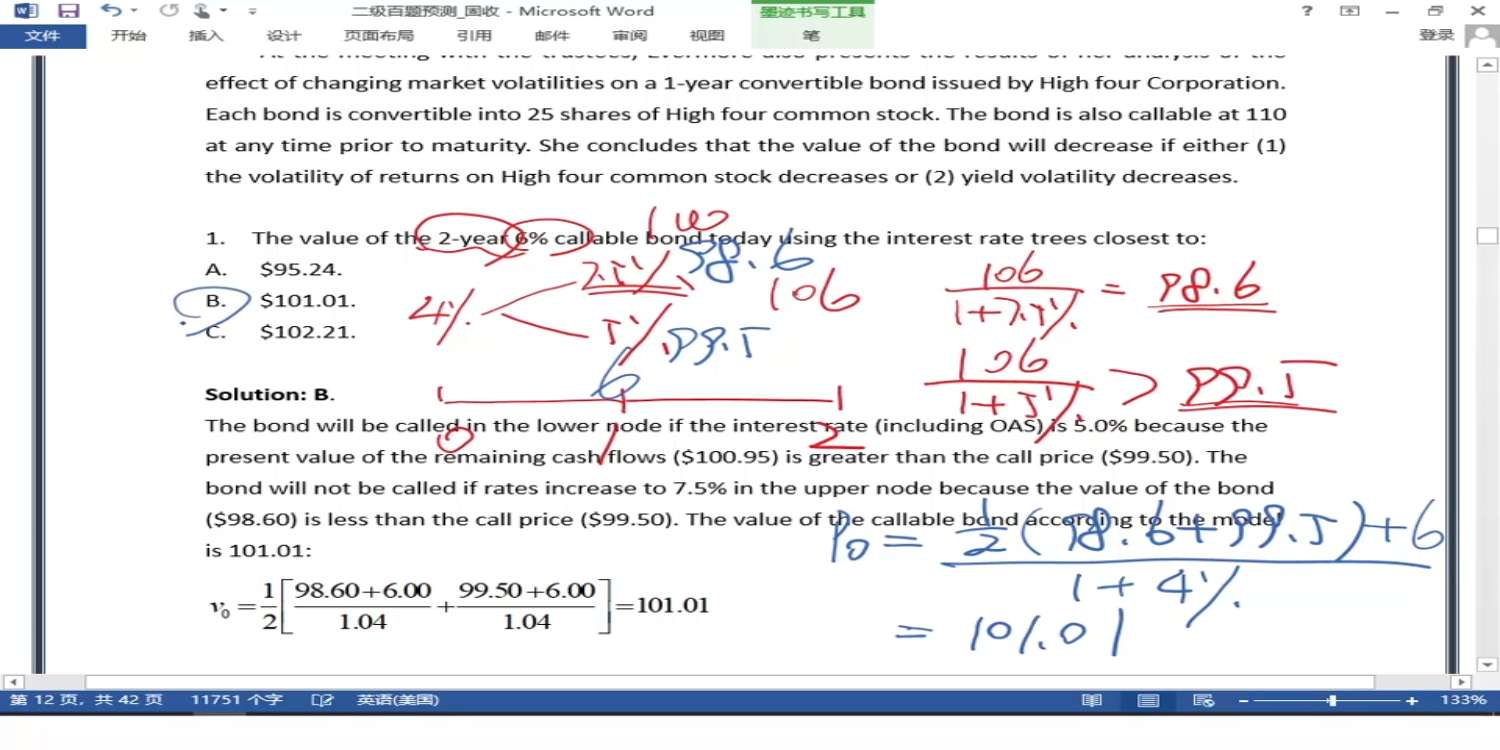 二级百题预测_固收 - Microsoft Word
墨迹书写工具
文件 开始 插入 设计 页面布局 引用 邮件 审阅 视图 笔 登录
At the meeting with the trustees, Evermore also presents the results of her analysis of the
effect of changing market volatilities on a 1-year convertible bond issued by High four Corporation.
Each bond is convertible into 25 shares of High four common stock. The bond is also callable at 110
at any time prior to maturity. She concludes that the value of the bond will decrease if either (1)
the volatility of returns on High four common stock decreases or (2) yield volatility decreases.
100
1. The value of the 2-year 6% callable bond today using the interest rate trees closest to:
A. $95.24.
B. $101.01.
C. $102.21.
4%
7.5% 98.6
5% 99.5
106
106 / 1+7.5% = 98.6
106 / 1+5% > 99.5
6
0 1 2
Solution: B.
The bond will be called in the lower node if the interest rate (including OAS) is 5.0% because the
present value of the remaining cash flows ($100.95) is greater than the call price ($99.50). The
bond will not be called if rates increase to 7.5% in the upper node because the value of the bond
($98.60) is less than the call price ($99.50). The value of the callable bond according to the model
is 101.01:
v₀ = 1/2 [ 98.60+6.00 / 1.04 + 99.50+6.00 / 1.04 ] = 101.01
P₀ = 1/2 (98.6+99.5)+6 / 1+4%
= 101.01
第 12 页, 共 42 页 11751 个字 英语(美国) 133%